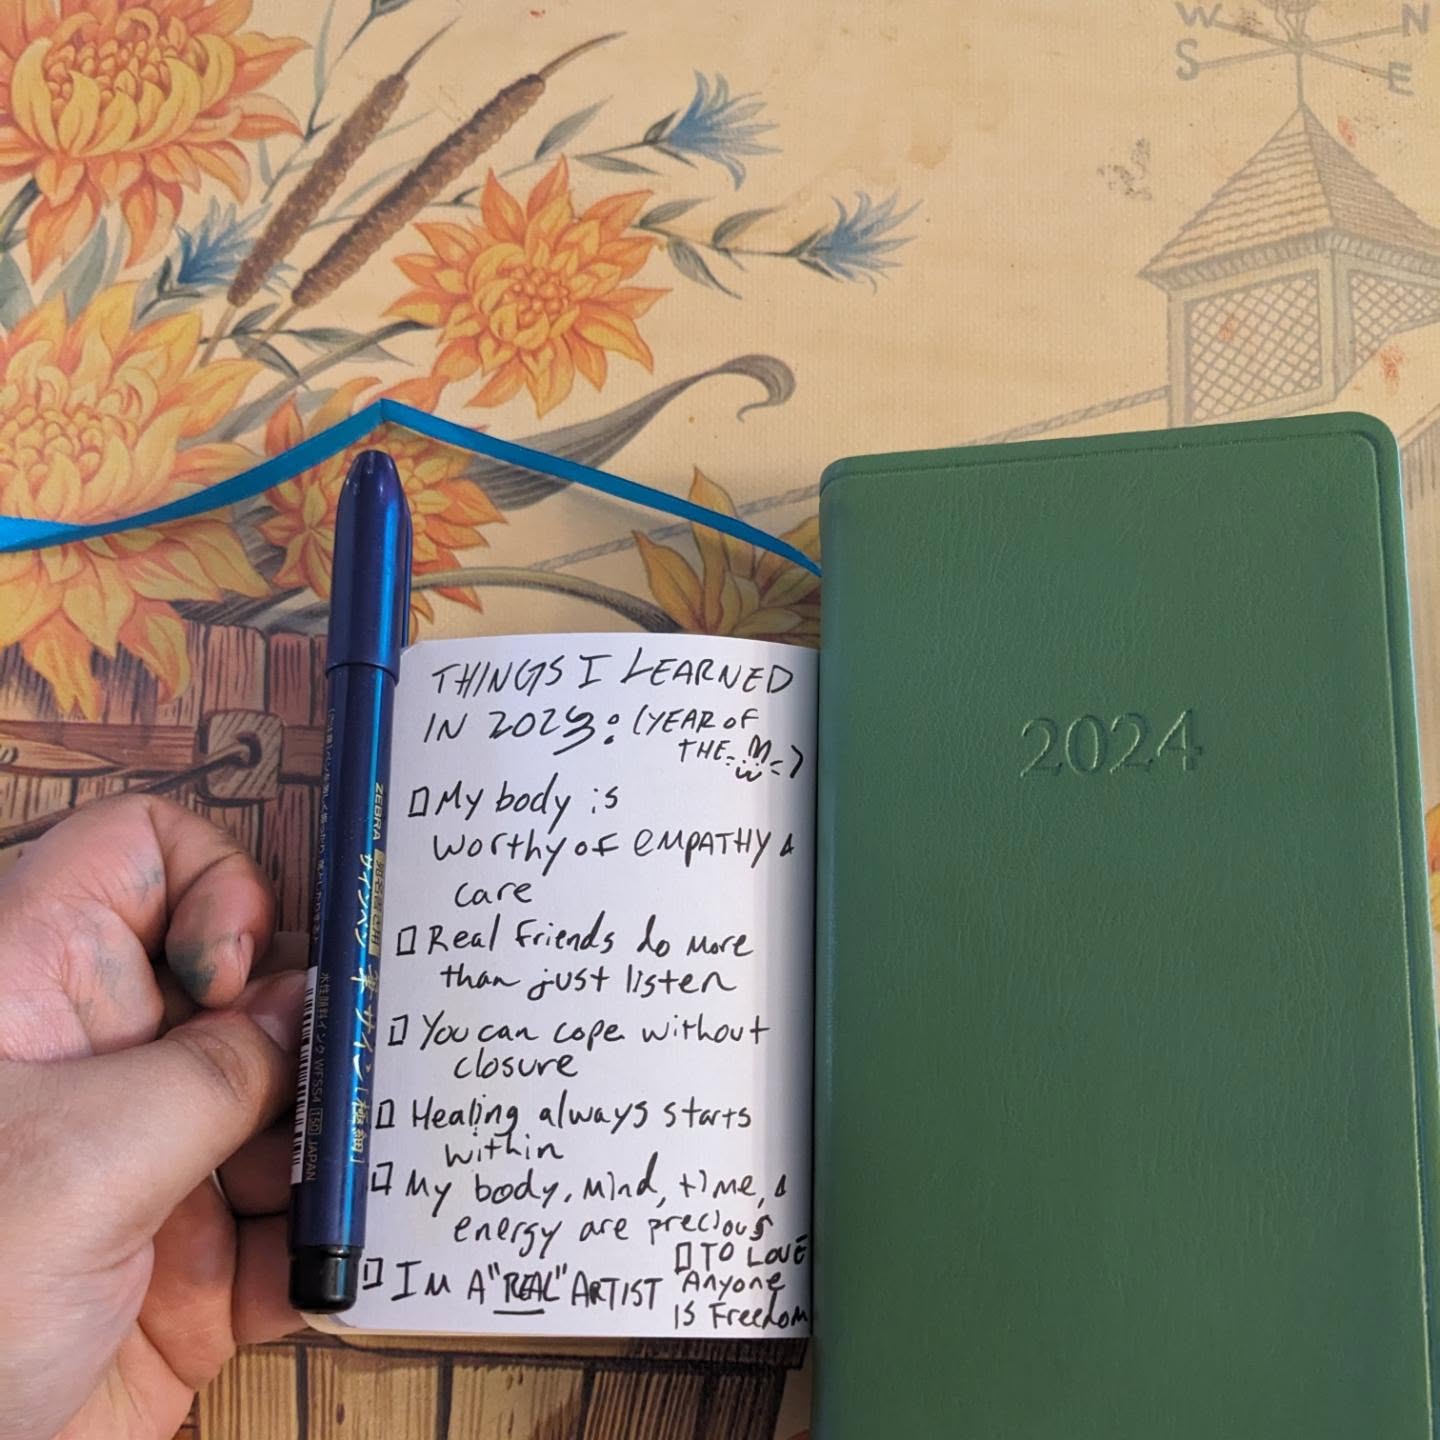 W N
S E
THINGS I LEARNED
IN 2023: (YEAR OF
THE )
My body is
worthy of EMPATHY &
care
Real Friends do More
than just listen
You can cope without
closure
Healing always starts
within
My body, mind, time, &
energy are precious
I'M A "REAL" ARTIST
TO LOVE
Anyone
IS Freedom
2024
ZEBRA
サインペン
水性顔料インク WFSS4 150 JAPAN